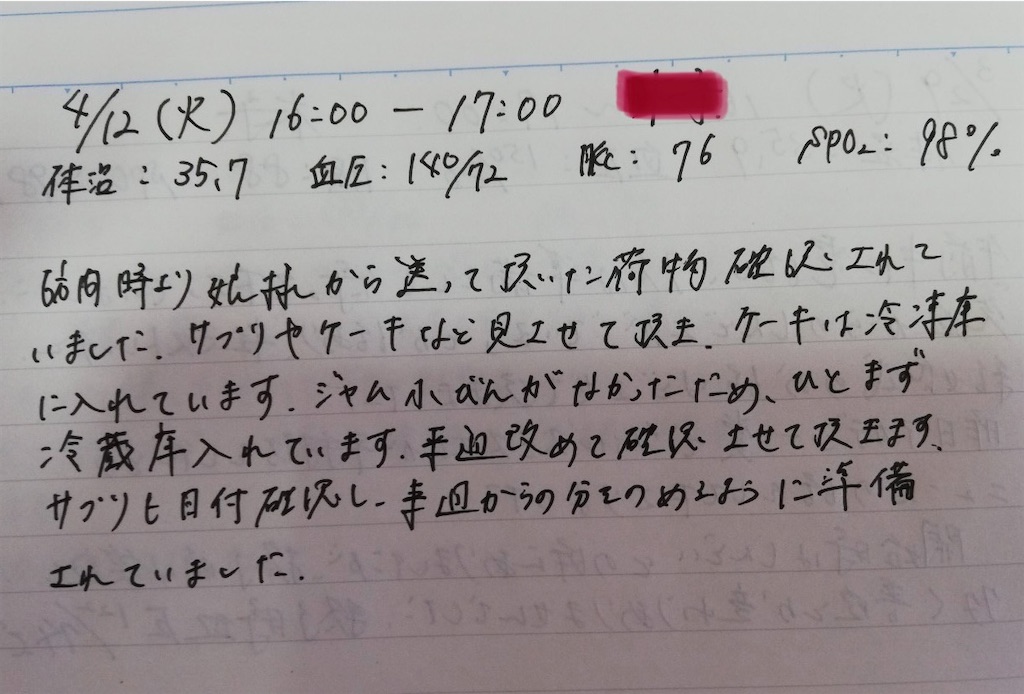 4/12（火）16:00 － 17:00
体温：35.7 血圧：140/72 脈：76 SpO₂：98%
訪問時より姉様から送って頂いた荷物確認されて
いました。サプリやケーキなど見させて頂き、ケーキは冷凍庫
に入れています。ジャム小びんがなかったため、ひとまず
冷蔵庫入れています。来週改めて確認させて頂きます。
サプリも日付確認し、来週からの分をのめるように準備
されていました。